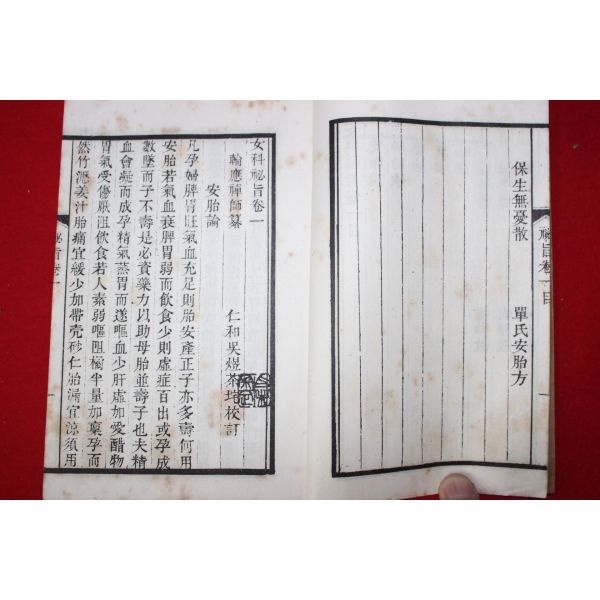 保生無憂散 單氏安胎方
秘旨卷一目
女科祕旨卷一
輪應禪師纂 仁和吳煜茶坨校訂
安胎論
凡孕婦脾胃旺氣血充足則胎安產正子亦多壽何用
安胎若氣血衰脾胃弱而飲食少則虛症百出或孕成
數墜而子不壽是必資藥力以助母胎並壽子也夫精
血會凝而成孕精氣蒸胃而遂嘔血少肝虛如愛醋物
胃氣受傷厭阻飲食若人素弱嘔阻橘半量加稟孕而
然竹瀝姜汁胎痛宜緩少加帶壳砂仁胎漏宜涼須用
祕旨卷一